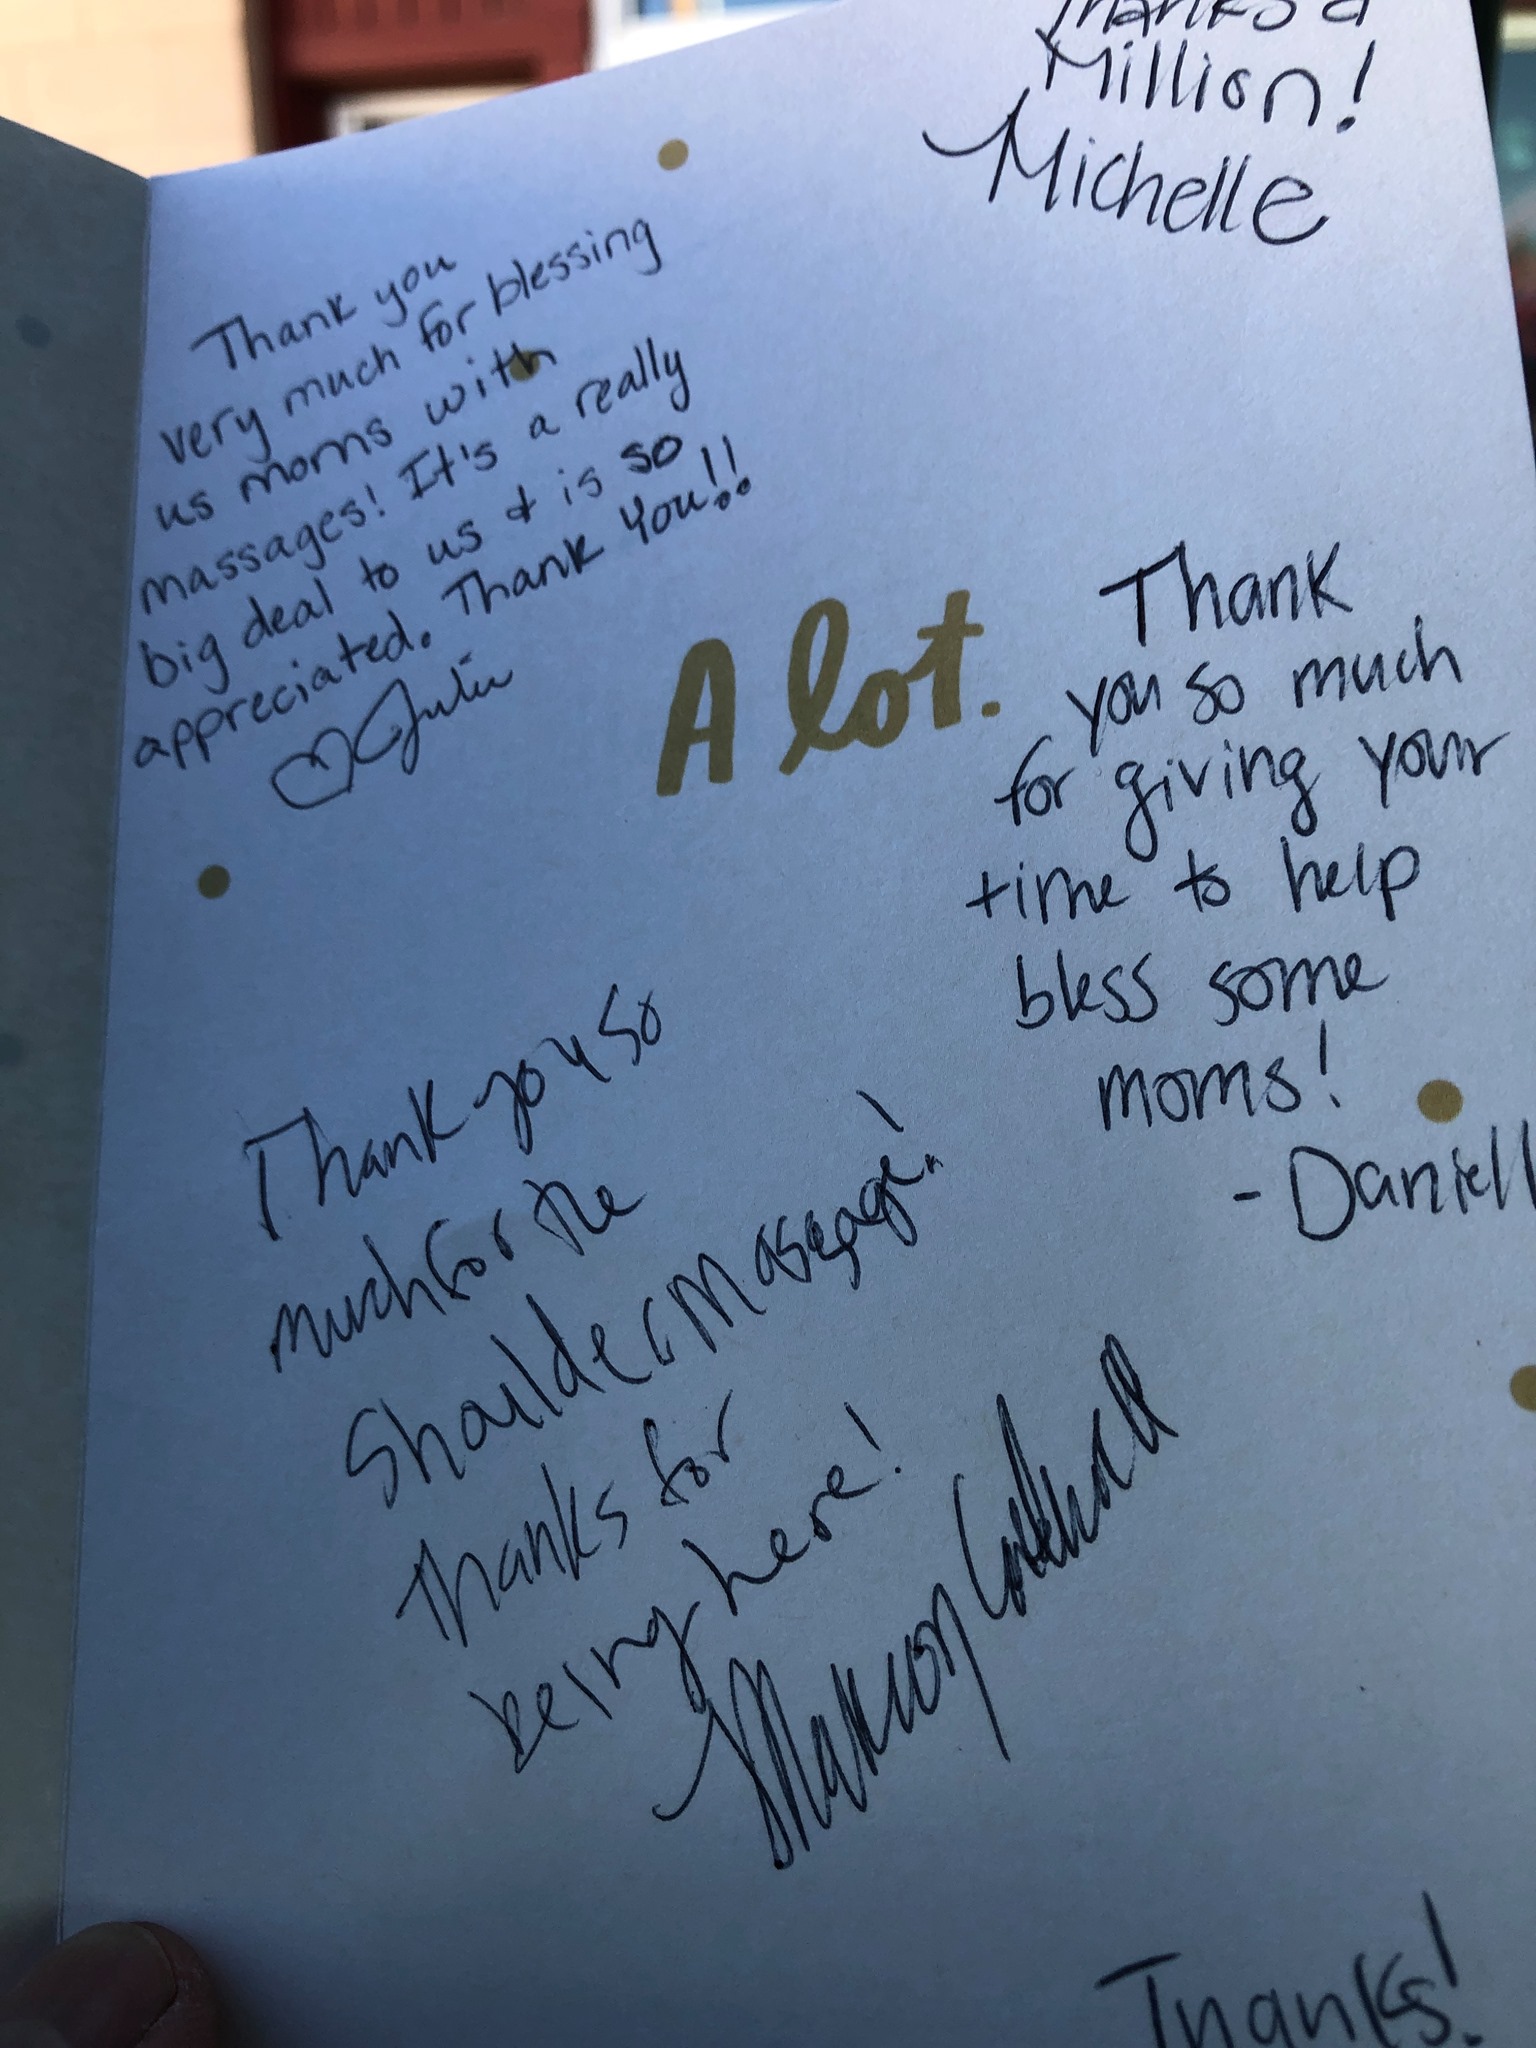 Thanks a
Million!
Michelle
Thank you
very much for blessing
us moms with
massages! It's a really
big deal to us & is so
appreciated. Thank You!!
Julie
A lot.
Thank
you so much
for giving your
time to help
bless some
moms!
- Daniell
Thank you so
much for the
Shoulder Massage!
Thanks for
being here!
Thanks!